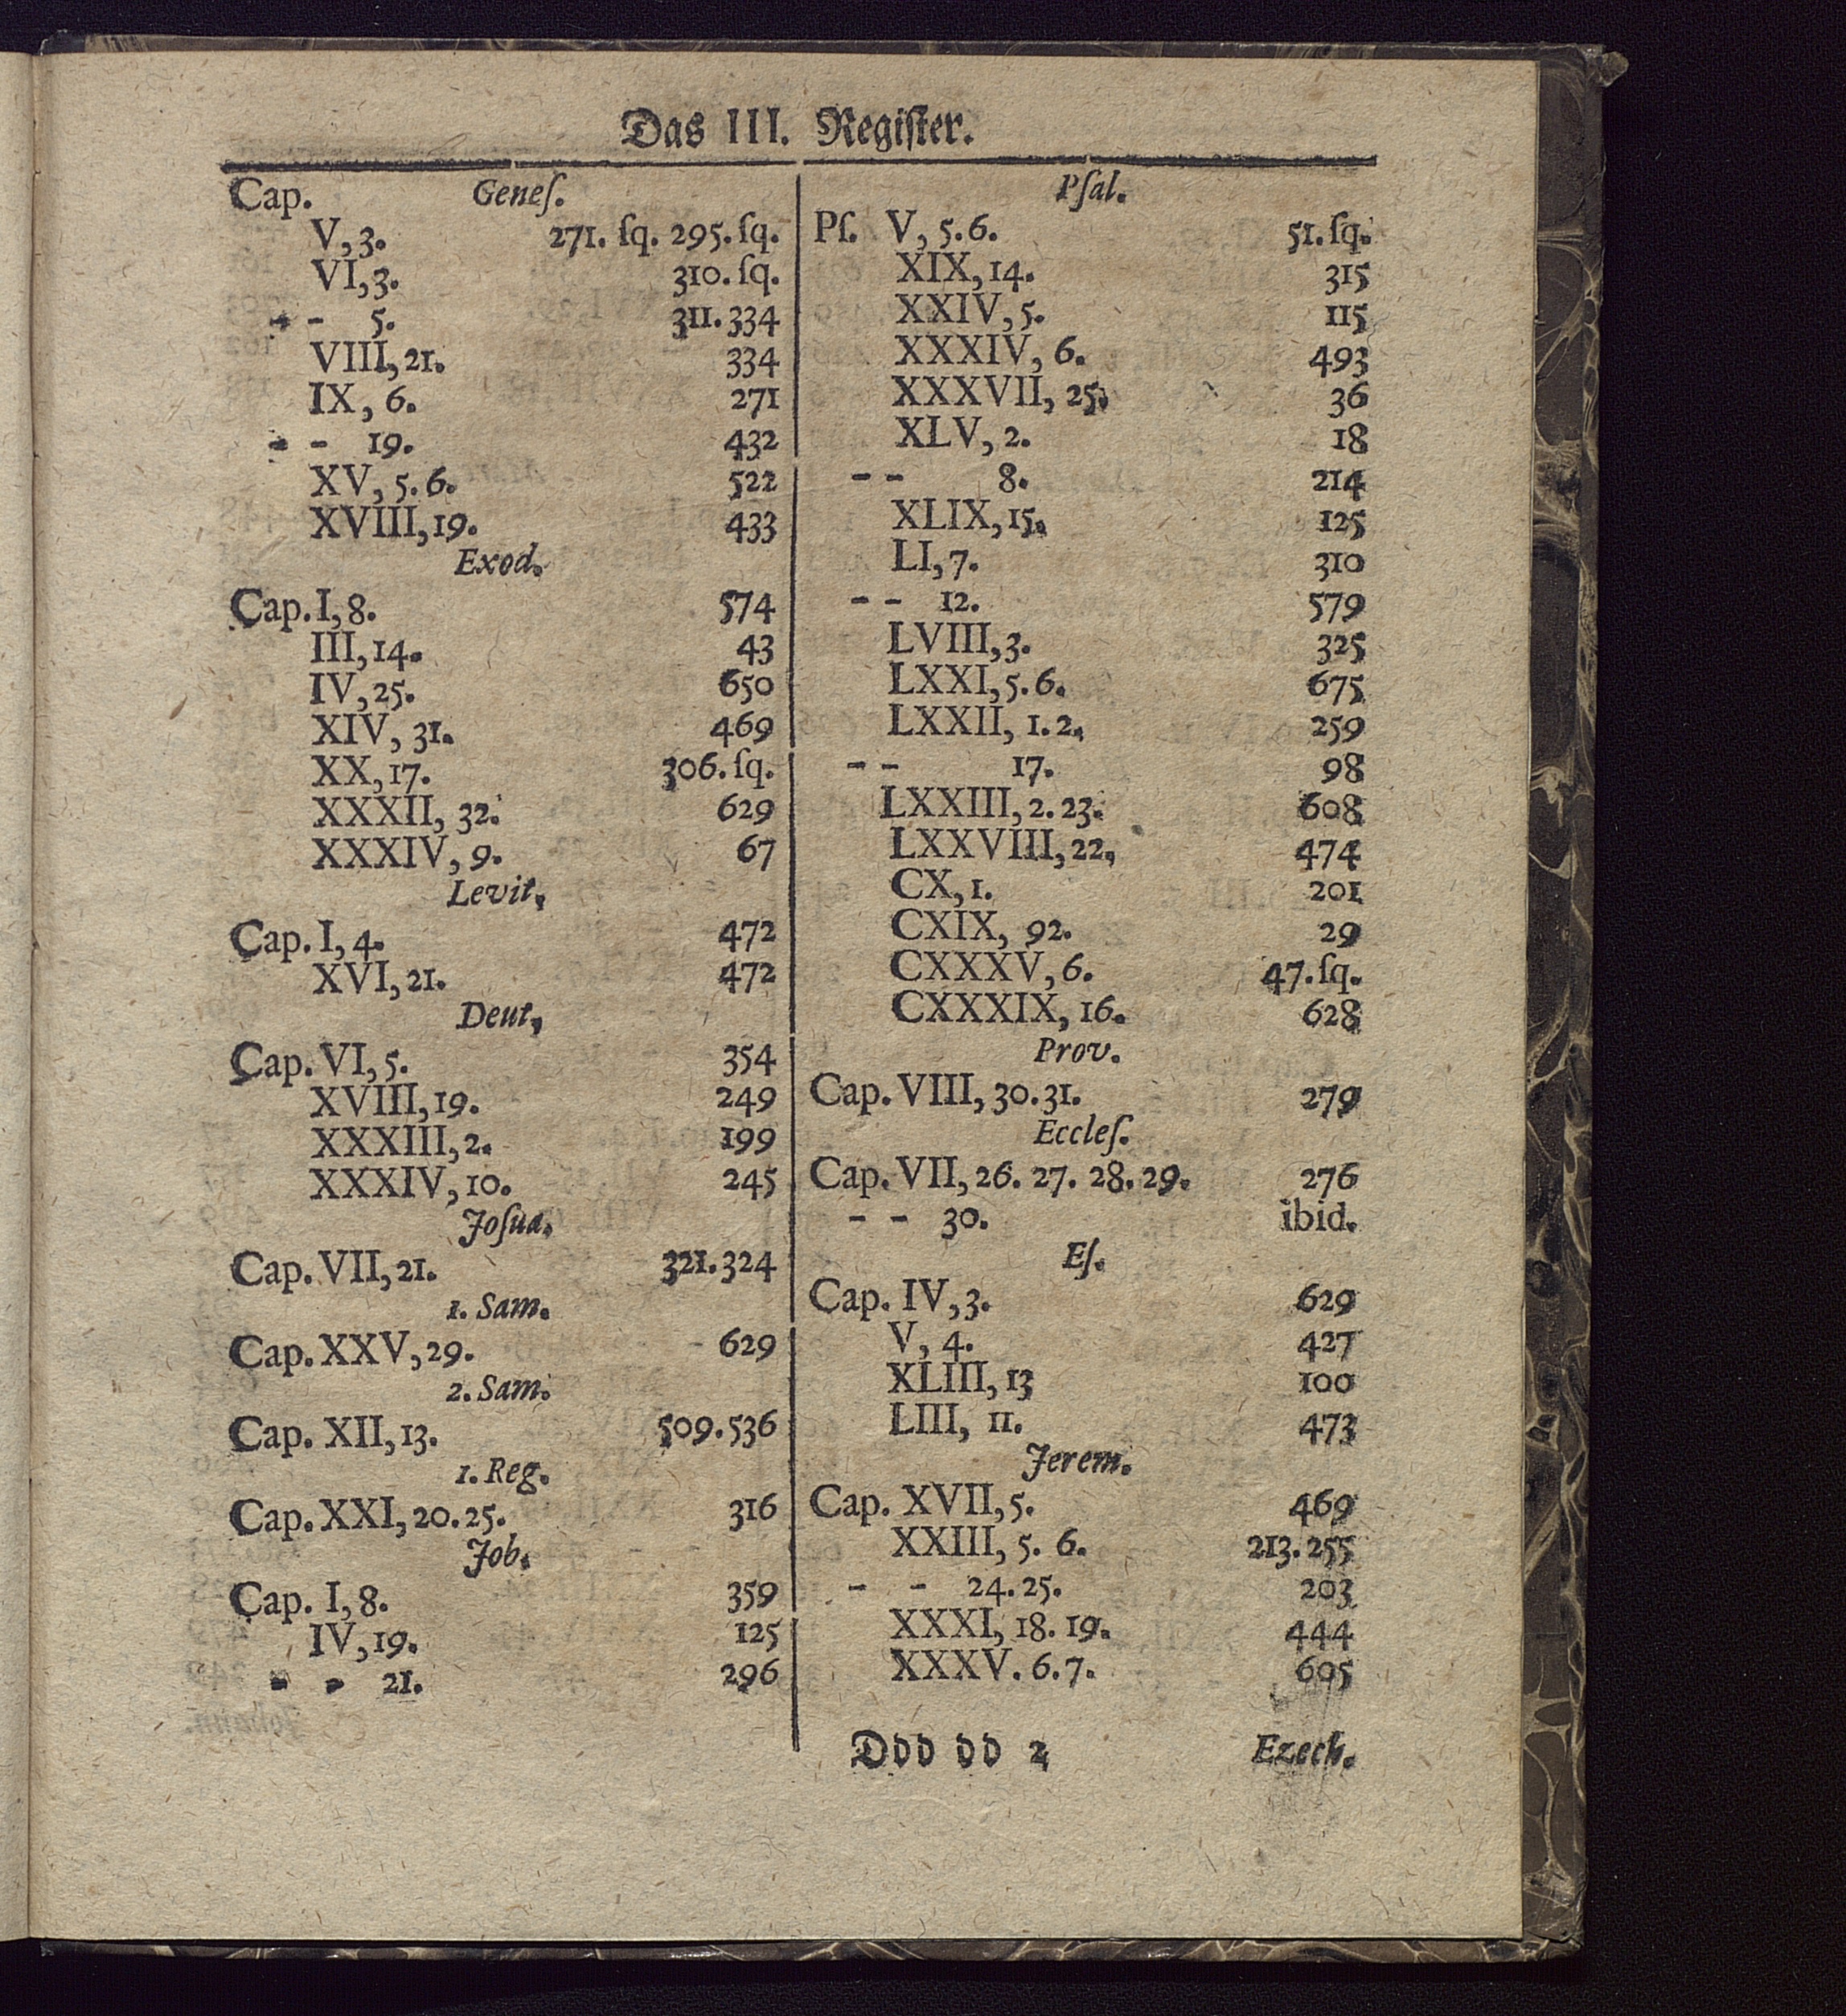 Das III. Regiſter.
Cap. Geneſ.
V, 3. 271. ſq. 295. ſq.
VI, 3. 310. ſq.
- - 5. 311. 334
VIII, 21. 334
IX, 6. 271
- - 19. 432
XV, 5. 6. 522
XVIII, 19. 433
Exod.
Cap. I, 8. 574
III, 14. 43
IV, 25. 650
XIV, 31. 469
XX, 17. 306. ſq.
XXXII, 32. 629
XXXIV, 9. 67
Levit.
Cap. I, 4. 472
XVI, 21. 472
Deut.
Cap. VI, 5. 354
XVIII, 19. 249
XXXIII, 2. 199
XXXIV, 10. 245
Joſua.
Cap. VII, 21. 321. 324
1. Sam.
Cap. XXV, 29. 629
2. Sam.
Cap. XII, 13. 509. 536
1. Reg.
Cap. XXI, 20. 25. 316
Job.
Cap. I, 8. 359
IV, 19. 125
- - 21. 296
Pſal.
Pſ. V, 5. 6. 51. ſq.
XIX, 14. 315
XXIV, 5. 115
XXXIV, 6. 493
XXXVII, 25. 36
XLV, 2. 18
- - 8. 214
XLIX, 15. 125
LI, 7. 310
- - 12. 579
LVIII, 3. 325
LXXI, 5. 6. 675
LXXII, 1. 2. 259
- - 17. 98
LXXIII, 2. 23. 608
LXXVIII, 22. 474
CX, 1. 201
CXIX, 92. 29
CXXXV, 6. 47. ſq.
CXXXIX, 16. 628
Prov.
Cap. VIII, 30. 31. 279
Eccleſ.
Cap. VII, 26. 27. 28. 29. 276
- - 30. ibid.
Eſ.
Cap. IV, 3. 629
V, 4. 427
XLIII, 13 100
LIII, 11. 473
Jerem.
Cap. XVII, 5. 469
XXIII, 5. 6. 213. 255
- - 24. 25. 203
XXXI, 18. 19. 444
XXXV. 6. 7. 605
Ddd dd 2 Ezech.